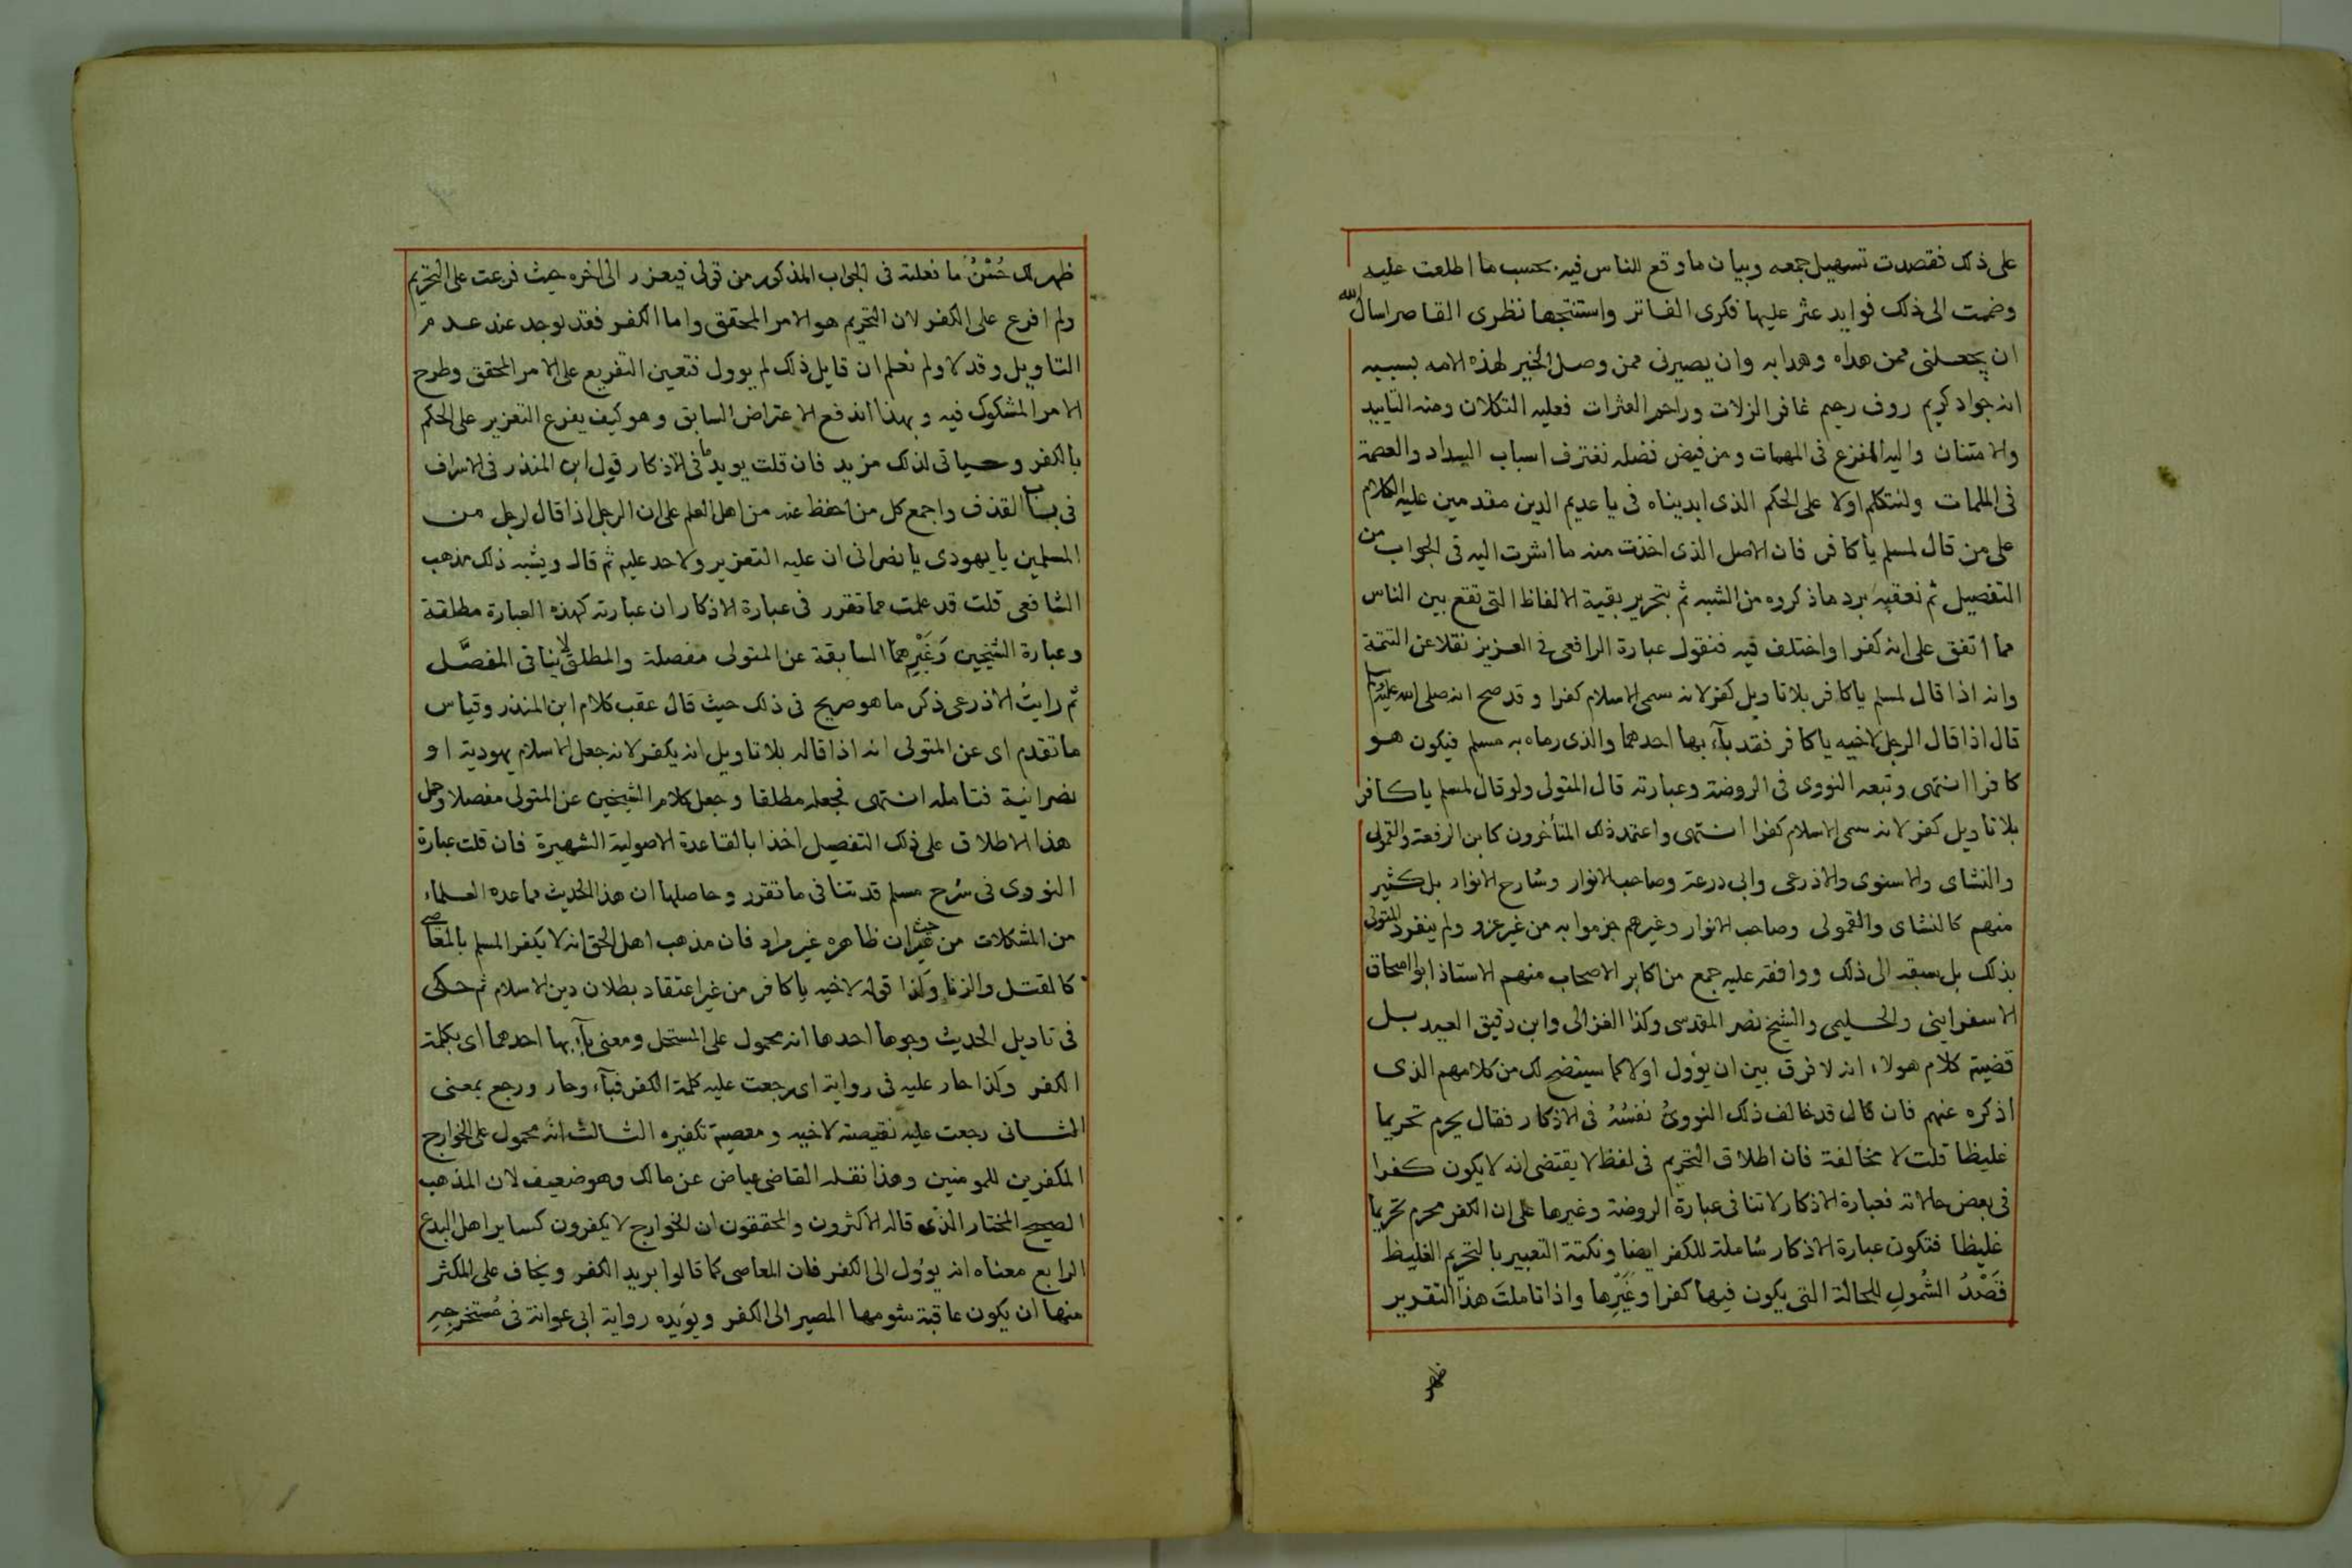 على ذلك فقصدت تسهيل جمعه وبيان ما وقع للناس فيه بحسب ما اطلعت عليه
وضممت الى ذلك فوايد عثر عليها فكرى الفاتر واستنتجها نظرى القاصر اسال الله
ان يجعلنى ممن هداه وهدا به وان يصيرنى ممن وصل الخير لهذه الامه بسببه
انه جواد كريم روف رحيم غافر الزلات وراحم العثرات فعليه التكلان ومنه التاييد
والامتنان واليه المفزع فى المهمات ومن فيض فضله نغترف اسباب السداد والعصمة
فى الملمات ولنتكلم اولا على الحكم الذى ابديناه فى يا عديم الدين مقدمين عليه الكلام
على من قال لمسلم يا كافر فان الاصل الذى اخذت منه ما اشرت اليه فى الجواب من
التفصيل ثم نعقبه برد ما ذكروه من الشبه ثم بتحرير بقية الالفاظ التى تقع بين الناس
مما اتفق على انه كفر او اختلف فيه فنقول عبارة الرافعى فى العزيز نقلا عن التتمة
وانه اذا قال لمسلم يا كافر بلا تاويل كفر لانه سمى الاسلام كفرا وقد صح انه صلى الله عليه وسلم
قال اذا قال الرجل لاخيه يا كافر فقد بآء بها احدهما والذى رماه به مسلم فيكون هو
كافرا انتهى وتبعه النووى فى الروضة وعبارته قال المتولى ولو قال لمسلم يا كافر
بلا تاويل كفر لانه سمى الاسلام كفرا انتهى واعتمد ذلك المتأخرون كابن الرفعة والقمولى
والنشاى والاسنوى والاذرعى وابى زرعة وصاحب الانوار وشارح الانوار بل كثير
منهم كالنشاى والقمولى وصاحب الانوار وغيرهم جزموا به من غير عزو ولم ينفرد المتولى
بذلك بل سبقه الى ذلك ووافقه عليه جمع من اكابر الاصحاب منهم الاستاذ ابو اسحاق
الاسفراينى والحليمى والشيخ نصر المقدسى وكذا الغزالى وابن دقيق العيد بل
قضية كلام هولاء انه لا فرق بين ان يؤول اولا كما سيتضح لك من كلامهم الذى
اذكره عنهم فان قال قد خالف ذلك النووىُّ نفسُهُ فى الاذكار فقال يحرم تحريما
غليظا قلت لا مخالفة فان اطلاق التحريم فى لفظ لا يقتضى انه لا يكون كفرا
فى بعض حالاته فعبارة الاذكار لا تنافى عبارة الروضة وغيرها على ان الكفر محرم تحريما
غليظا فتكون عبارة الاذكار شاملة للكفر ايضا ونكتة التعبير بالتحريم الغليظ
قَصْدُ الشُمولِ للحالة التى يكون فيها كفرا وغَيْرِها واذا تاملتَ هذا التقدير
ظهر
ظهر لك حُسْنُ ما فعلته فى الجواب المذكور من قولى فيعزر الى اخره حيث فرعت على التحريم
ولم افرع على الكفر لان التحريم هو الامر المحقق واما الكفر فقد يوجد عند عدم
التاويل وقد لا ولم نعلم ان قايل ذلك لم يوول فتعين التفريع على الامر المحقق وطرح
الامر المشكوك فيه وبهذا اندفع الاعتراض السابق وهو كيف يفرع التعزير على الحكم
بالكفر وسياتى لذلك مزيد فان قلت يويد ما فى الاذكار قول ابن المنذر فى الاسراف
فى باب القذف واجمع كل من احفظ عنه من اهل العلم على ان الرجل اذا قال لرجل من
المسلمين يا يهودى يا نصرانى ان عليه التعزير ولا حد عليه ثم قال ويشبه ذلك مذهب
الشافعى قلت قد علمت مما تقرر فى عبارة الاذكار ان عبارته كهذه العبارة مطلقة
وعبارة الشيخين وَغَيْرِهما السابقة عن المتولى مفصلة والمطلق لا ينافى المفصَّل
ثم رايتُ الاذرعى ذكر ما هو صريح فى ذلك حيث قال عقب كلام ابن المنذر وقياس
ما تقدم اى عن المتولى انه اذا قاله بلا تاويل انه يكفر لانه جعل الاسلام يهودية او
نصرانية فتامله انتهى فجعله مطلقا وجعل كلام الشيخين عن المتولى مفصلا وحمل
هذا الاطلاق على ذلك التفصيل اخذا بالقاعدة الاصولية الشهيرة فان قلت عبارة
النووى فى شرح مسلم قد تنافى ما تقرر وحاصلها ان هذا الحديث مما عده العلماء
من المشكلات من حيث ان ظاهره غير مراد فان مذهب اهل الحق انه لا يكفر المسلم بالمعاصى
كالقتل والزنا وكذا قوله لاخيه يا كافر من غير اعتقاد بطلان دين الاسلام ثم حكى
فى تاويل الحديث وجوها احدها انه محمول على المستحل ومعنى بآء بها احدهما اى بكلمة
الكفر وكذا حار عليه فى رواية اى رجعت عليه كلمة الكفر فبآء وحار ورجع بمعنى
الثانى رجعت عليه نقيصته لاخيه ومعصية تكفيره الثالث انه محمول على الخوارج
المكفرين للمومنين وهذا نقله القاضى عياض عن مالك وهو ضعيف لان المذهب
الصحيح المختار الذى قاله الاكثرون والمحققون ان الخوارج لا يكفرون كساير اهل البدع
الرابع معناه انه يوؤل الى الكفر فان المعاصى كما قالوا بريد الكفر ويخاف على المكثر
منها ان يكون عاقبة شومها المصير الى الكفر ويؤيده رواية ابى عوانة فى مُستخرجِهِ